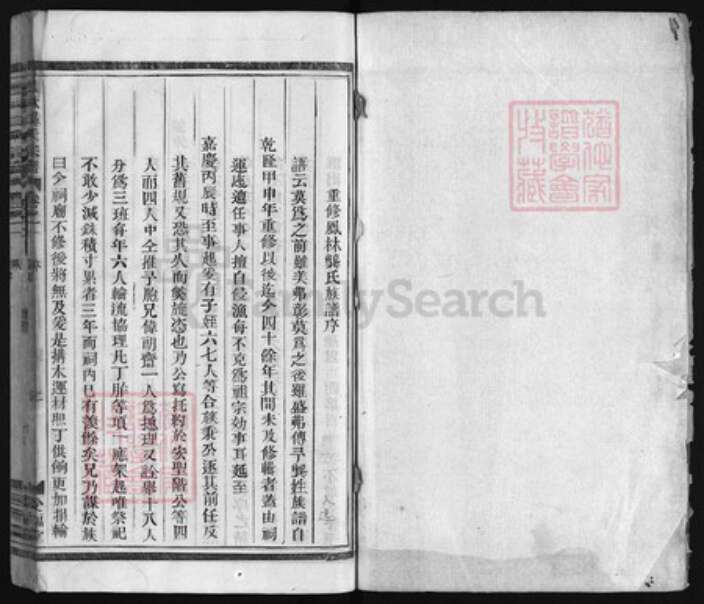 重修鳳林龔氏族譜序
語云莫為之前雖美弗彰莫為之後雖盛弗傳予龔姓族譜自
乾隆甲申年重修以後迄今四十餘年其間未及修輯者蓋由祠
運迍邅任事人擅自侵漁每不克為祖宗効事耳延至
嘉慶丙辰時至事起爰有子姪六七人等合族秉公逐其前任反
其舊規又恐其久而獘施恣也乃公寫托約於安聖階公等四
人而四人中仝推予胞兄偉朝齋一人為摠理又詮舉十八人
分為三班每年六人輪流協理凡丁胙等項一應架起唯祭祀
不敢少減銖積寸累者三年而祠內已有羨餘矣兄乃謀於族
曰今祠廟不修後將無及爰是搆木運材照丁供餉更加捐輪
譜學會
特藏
FamilySearch